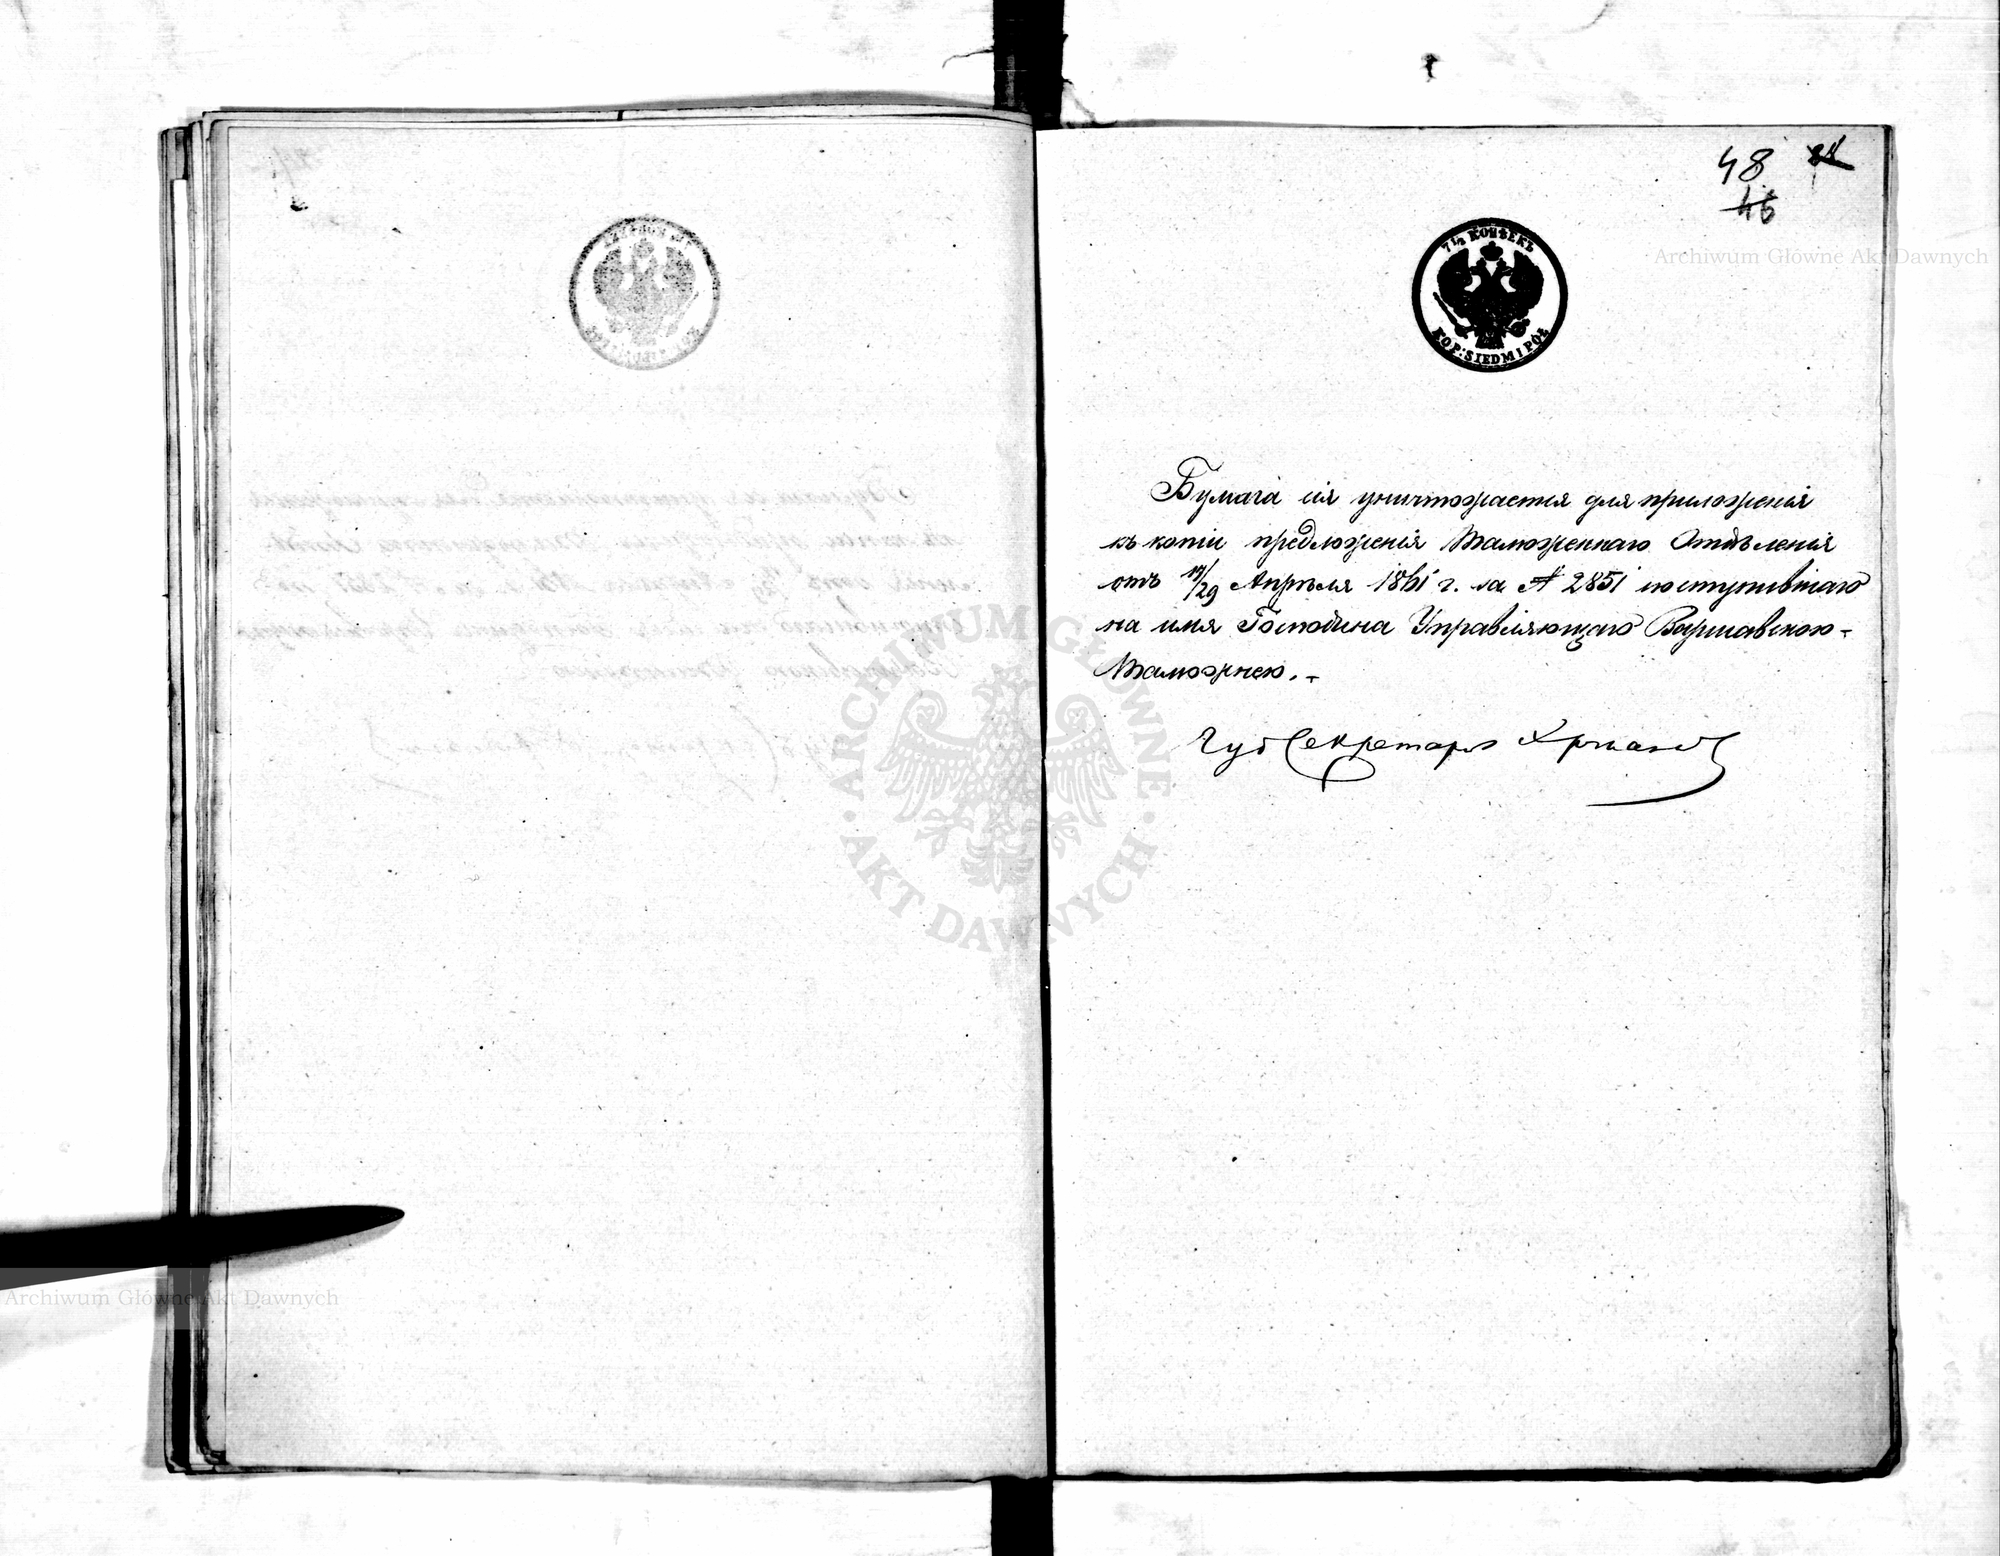 48
46
7½ КОПѢЕКЪ
KOP: SIEDM I PÓŁ
Бумага сія уничтожается для приложенія
къ копіи предложенія Таможеннаго Отдѣленія
отъ 17/29 Апрѣля 1861 г. за № 2851 поступившаго
на имя Господина Управляющаго Варшавскою
Таможнею.
Губ Секретарь
Archiwum Główne Akt Dawnych
ARCHIWUM GŁÓWNE · AKT DAWNYCH ·
Archiwum Główne Akt Dawnych